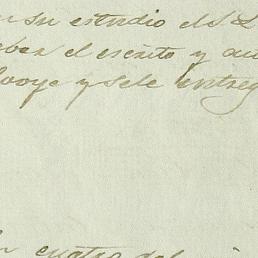 su estudio el S. L
el escrito y au
y se le entreg
cuatro del